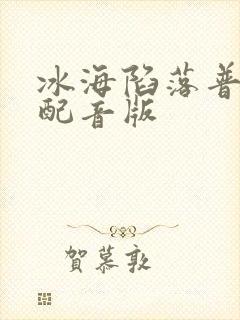 冰海陷落普
配音版
賀慕敦